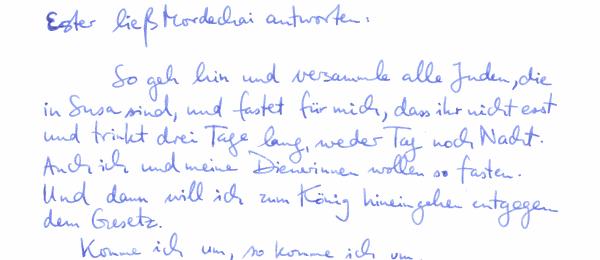 Ester ließ Mordechai antworten:
So geh hin und versammle alle Juden, die
in Susa sind, und fastet für mich, dass ihr nicht esst
und trinkt drei Tage lang, weder Tag noch Nacht.
Auch ich und meine Dienerinnen wollen so fasten.
Und dann will ich zum König hineingehen entgegen
dem Gesetz.
Komme ich um, so komme ich um.